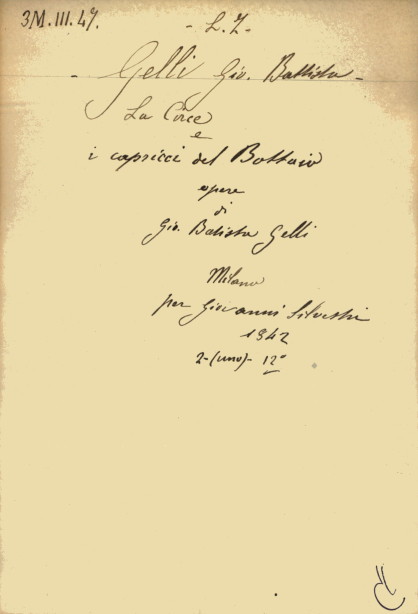 3M. III. 47.
- L. 7. -
- Gelli Gio. Battista -
La Circe
e
i capricci del Bottaio
opere
di
Gio. Batista Gelli
Milano
per Giovanni Silvestri
1842
2-(uno)- 12º